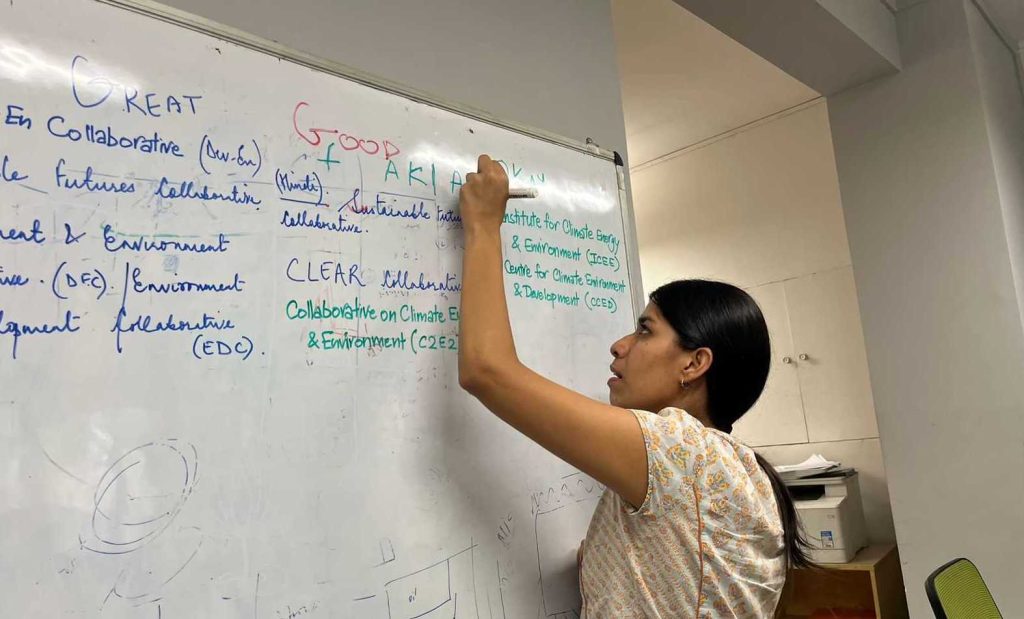 GREAT
En Collaborative (Dev-En)
Futures Collaborative
& Environment
(DEC). / Environment
Collaborative
(EDC).
GOOD
f
AKI
(Mindi) Sustainable
Collaborative.
CLEAR Collaborative
Collaborative on Climate
& Environment (C2E2
Institute for Climate Energy
& Environment (ICEE)
Centre for Climate Environment
& Development (CCED)